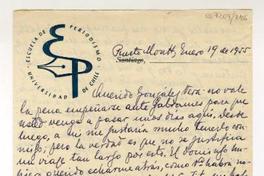 ESCUELA DE PERIODISMO
UNIVERSIDAD DE CHILE
Puerto Montt, Enero 19 de 1955
Santiago,
Querido González Vera: no vale
la pena empeñarse ante Galdames para que
usted venga a pasar unos días aquí. Desde
luego, a mí me gustaría mucho tenerlo con-
migo, pero la verdad es que no se justifica
un viaje tan largo por esto. El domingo